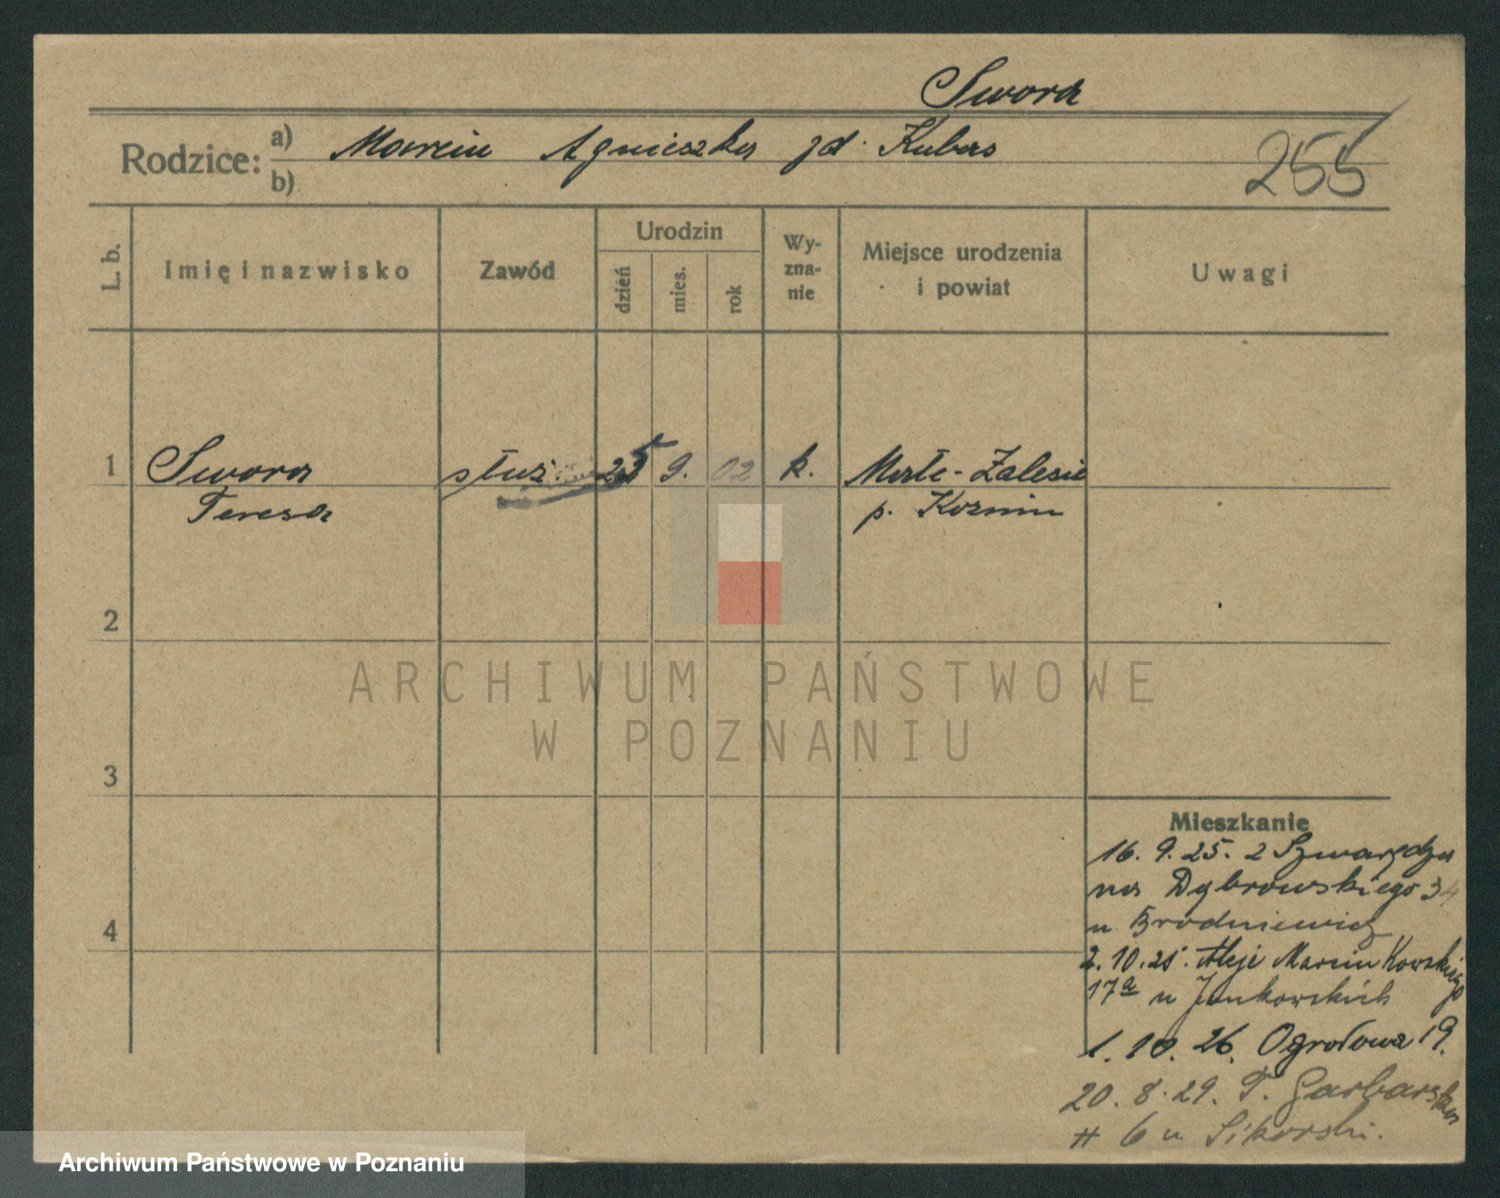 Swora
Rodzice: a) Marcin Agnieszka zd. Kubas
b)
255
L. b.
Imię i nazwisko
Zawód
Urodzin
dzień
mies.
rok
Wy-
zna-
nie
Miejsce urodzenia
i powiat
Uwagi
1 Swora służ. 25 9. 02 k. Małe-Zalesie
Teresa p. Kozmin
2
ARCHIWUM PAŃSTWOWE
W POZNANIU
3
Mieszkanie
16. 9. 25. z Szwarzędza
na Dąbrowskiego 34
u Brodniewicz
2. 10. 25. Aleje Marcinkowskiego
17a u Jankowskich
1. 10. 26. Ogrodowa 19.
4
20. 8. 29. T. Garbarska
6 u Sikorski.
Archiwum Państwowe w Poznaniu